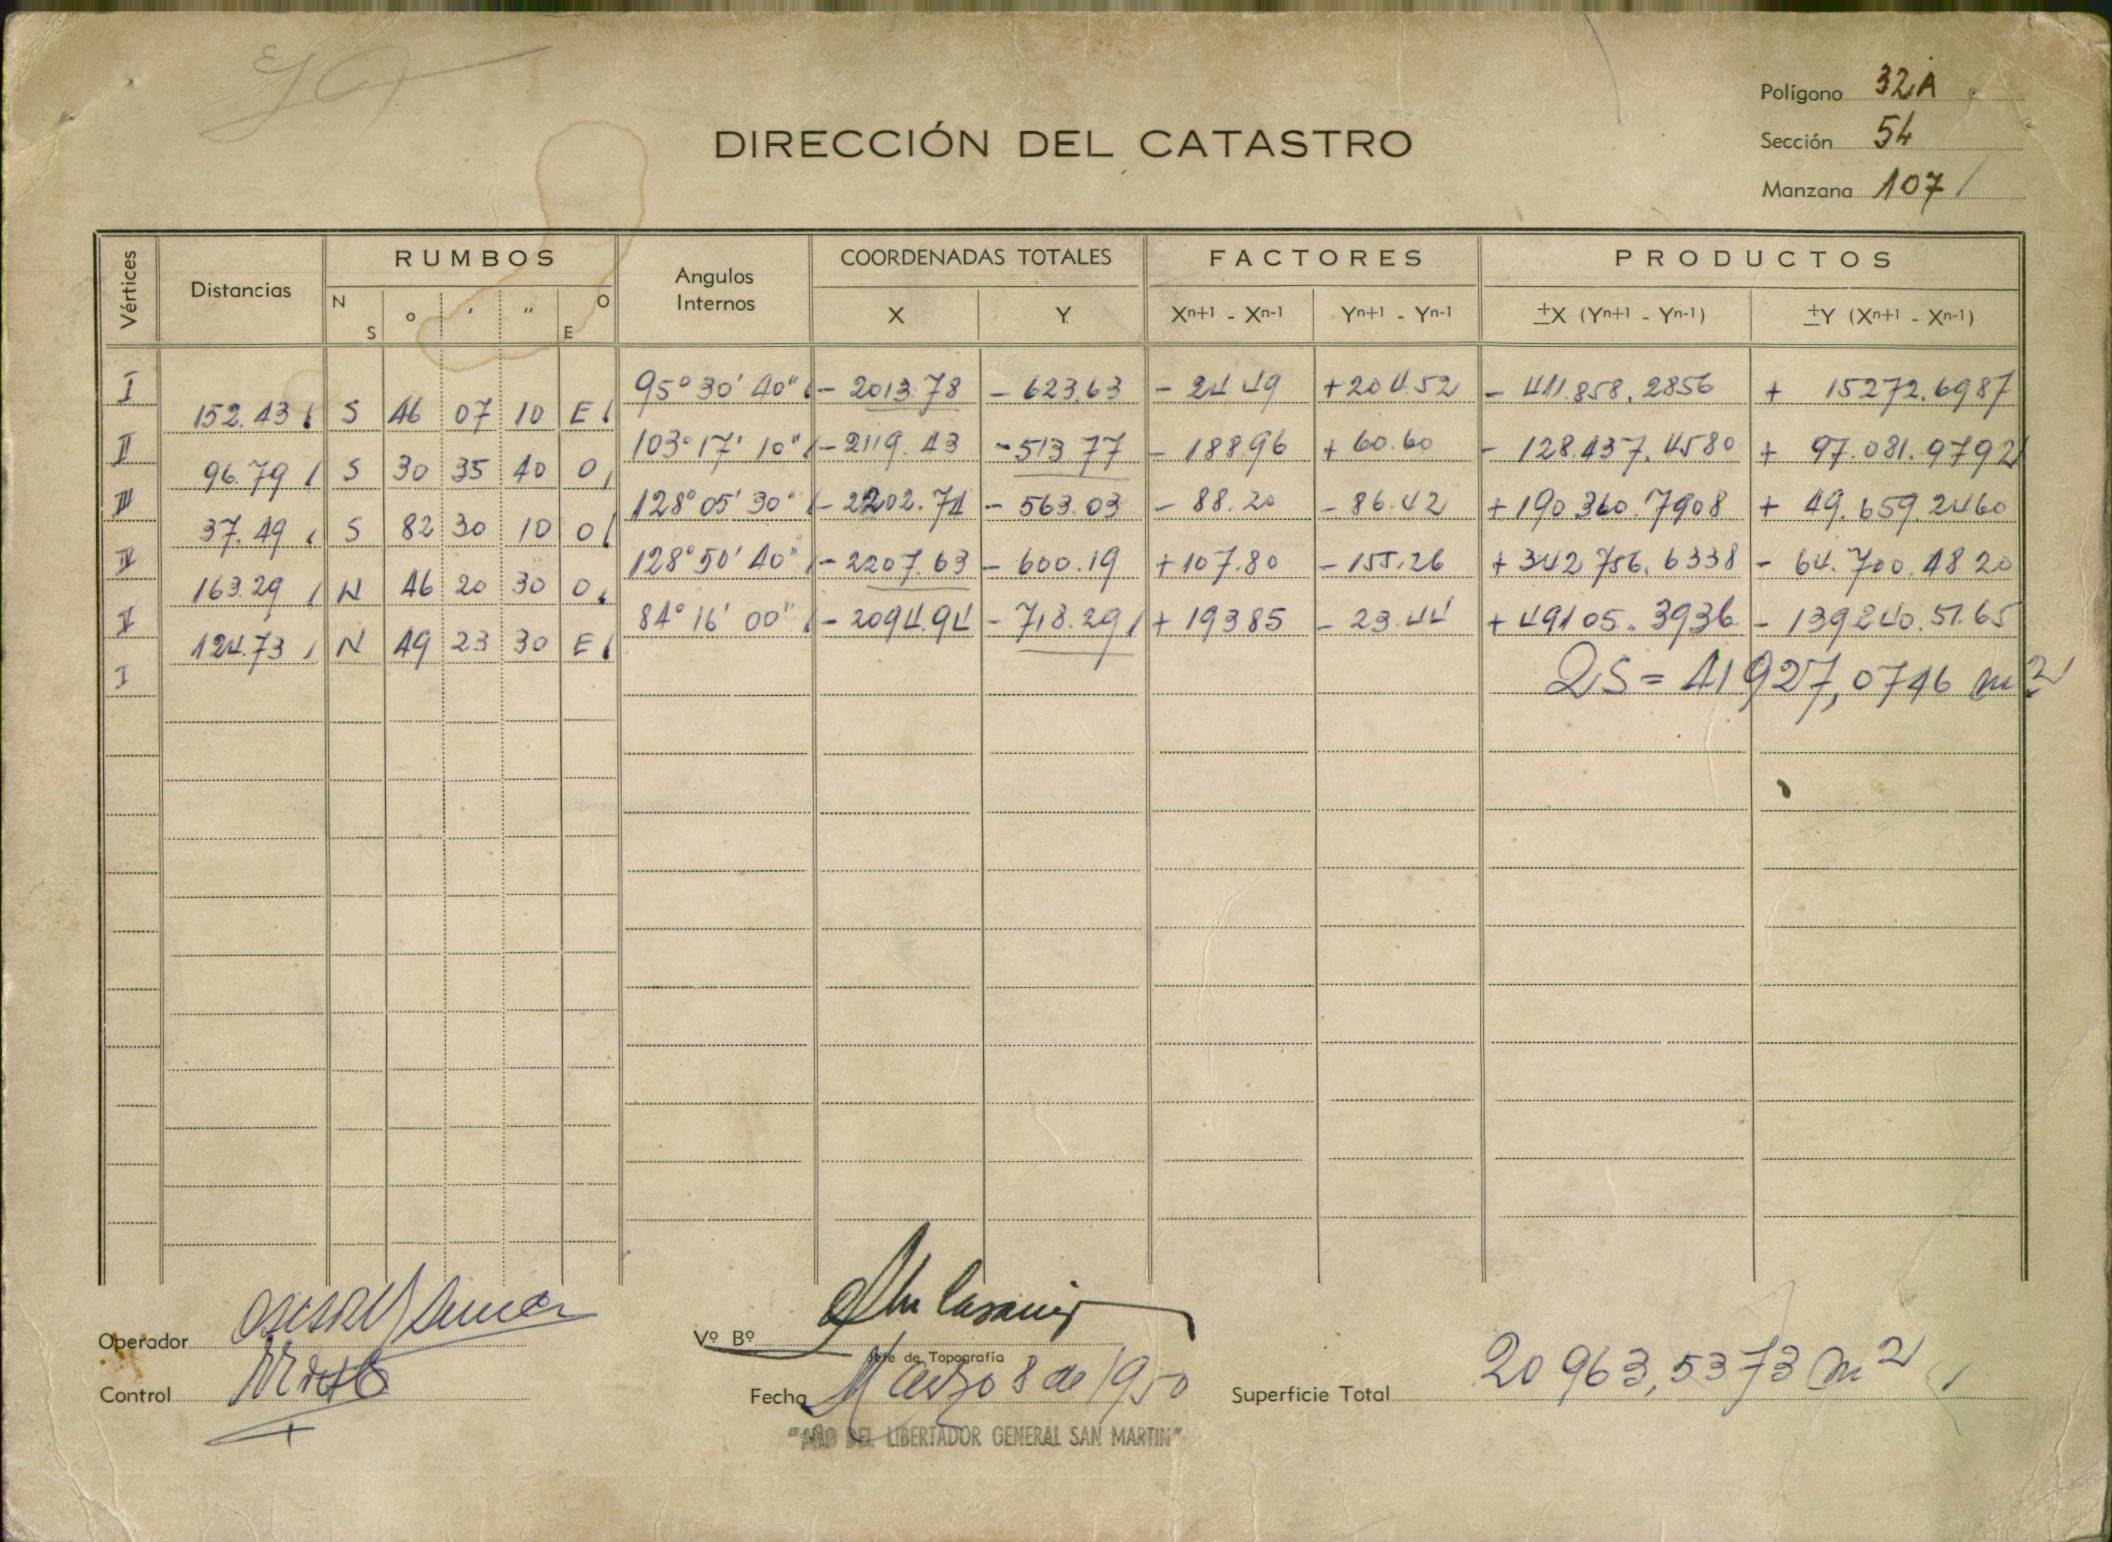 Polígono 32A
DIRECCIÓN DEL CATASTRO
Sección 54
Manzana 107
Vértices Distancias RUMBOS Angulos Internos COORDENADAS TOTALES FACTORES PRODUCTOS
N S ° ' " E O X Y Xn+1 - Xn-1 Yn+1 - Yn-1 ±X (Yn+1 - Yn-1) ±Y (Xn+1 - Xn-1)
I 95° 30' 40" - 2013.78 - 623.63 - 24.49 +204.52 - 411.858.2856 + 15272.6987
152.43 S 46 07 10 E
II 103° 17' 10" -2119.43 -513.77 - 188.96 + 60.60 - 128.437.4580 + 97.081.9792
96.79 S 30 35 40 O
III 128° 05' 30" - 2202.74 - 563.03 - 88.20 - 86.42 +190360.7908 + 49.659.2460
37.49 S 82 30 10 O
IV 128° 50' 40" - 2207.63 - 600.19 +107.80 -155.26 +342756.6338 - 64.700.4820
163.29 N 46 20 30 O
V 84° 16' 00" - 2094.94 - 718.29 + 193.85 - 23.44 +49105.3936 - 139240.5165
124.73 N 49 23 30 E
I 2S = 41927,0746 m2
Operador
Vº Bº
Jefe de Topografía
Control
Fecha Marzo 8 de 1950
Superficie Total 20963,5373 m2
"AÑO DEL LIBERTADOR GENERAL SAN MARTIN"